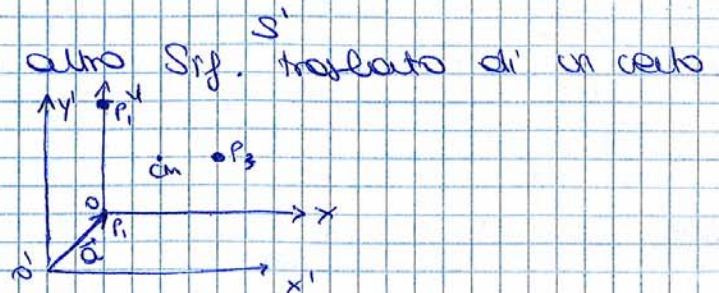 S'
altro Sif. traslato di un certo
y'
P₁ y
cm P₃
O
P₁
x
a
O'
x'